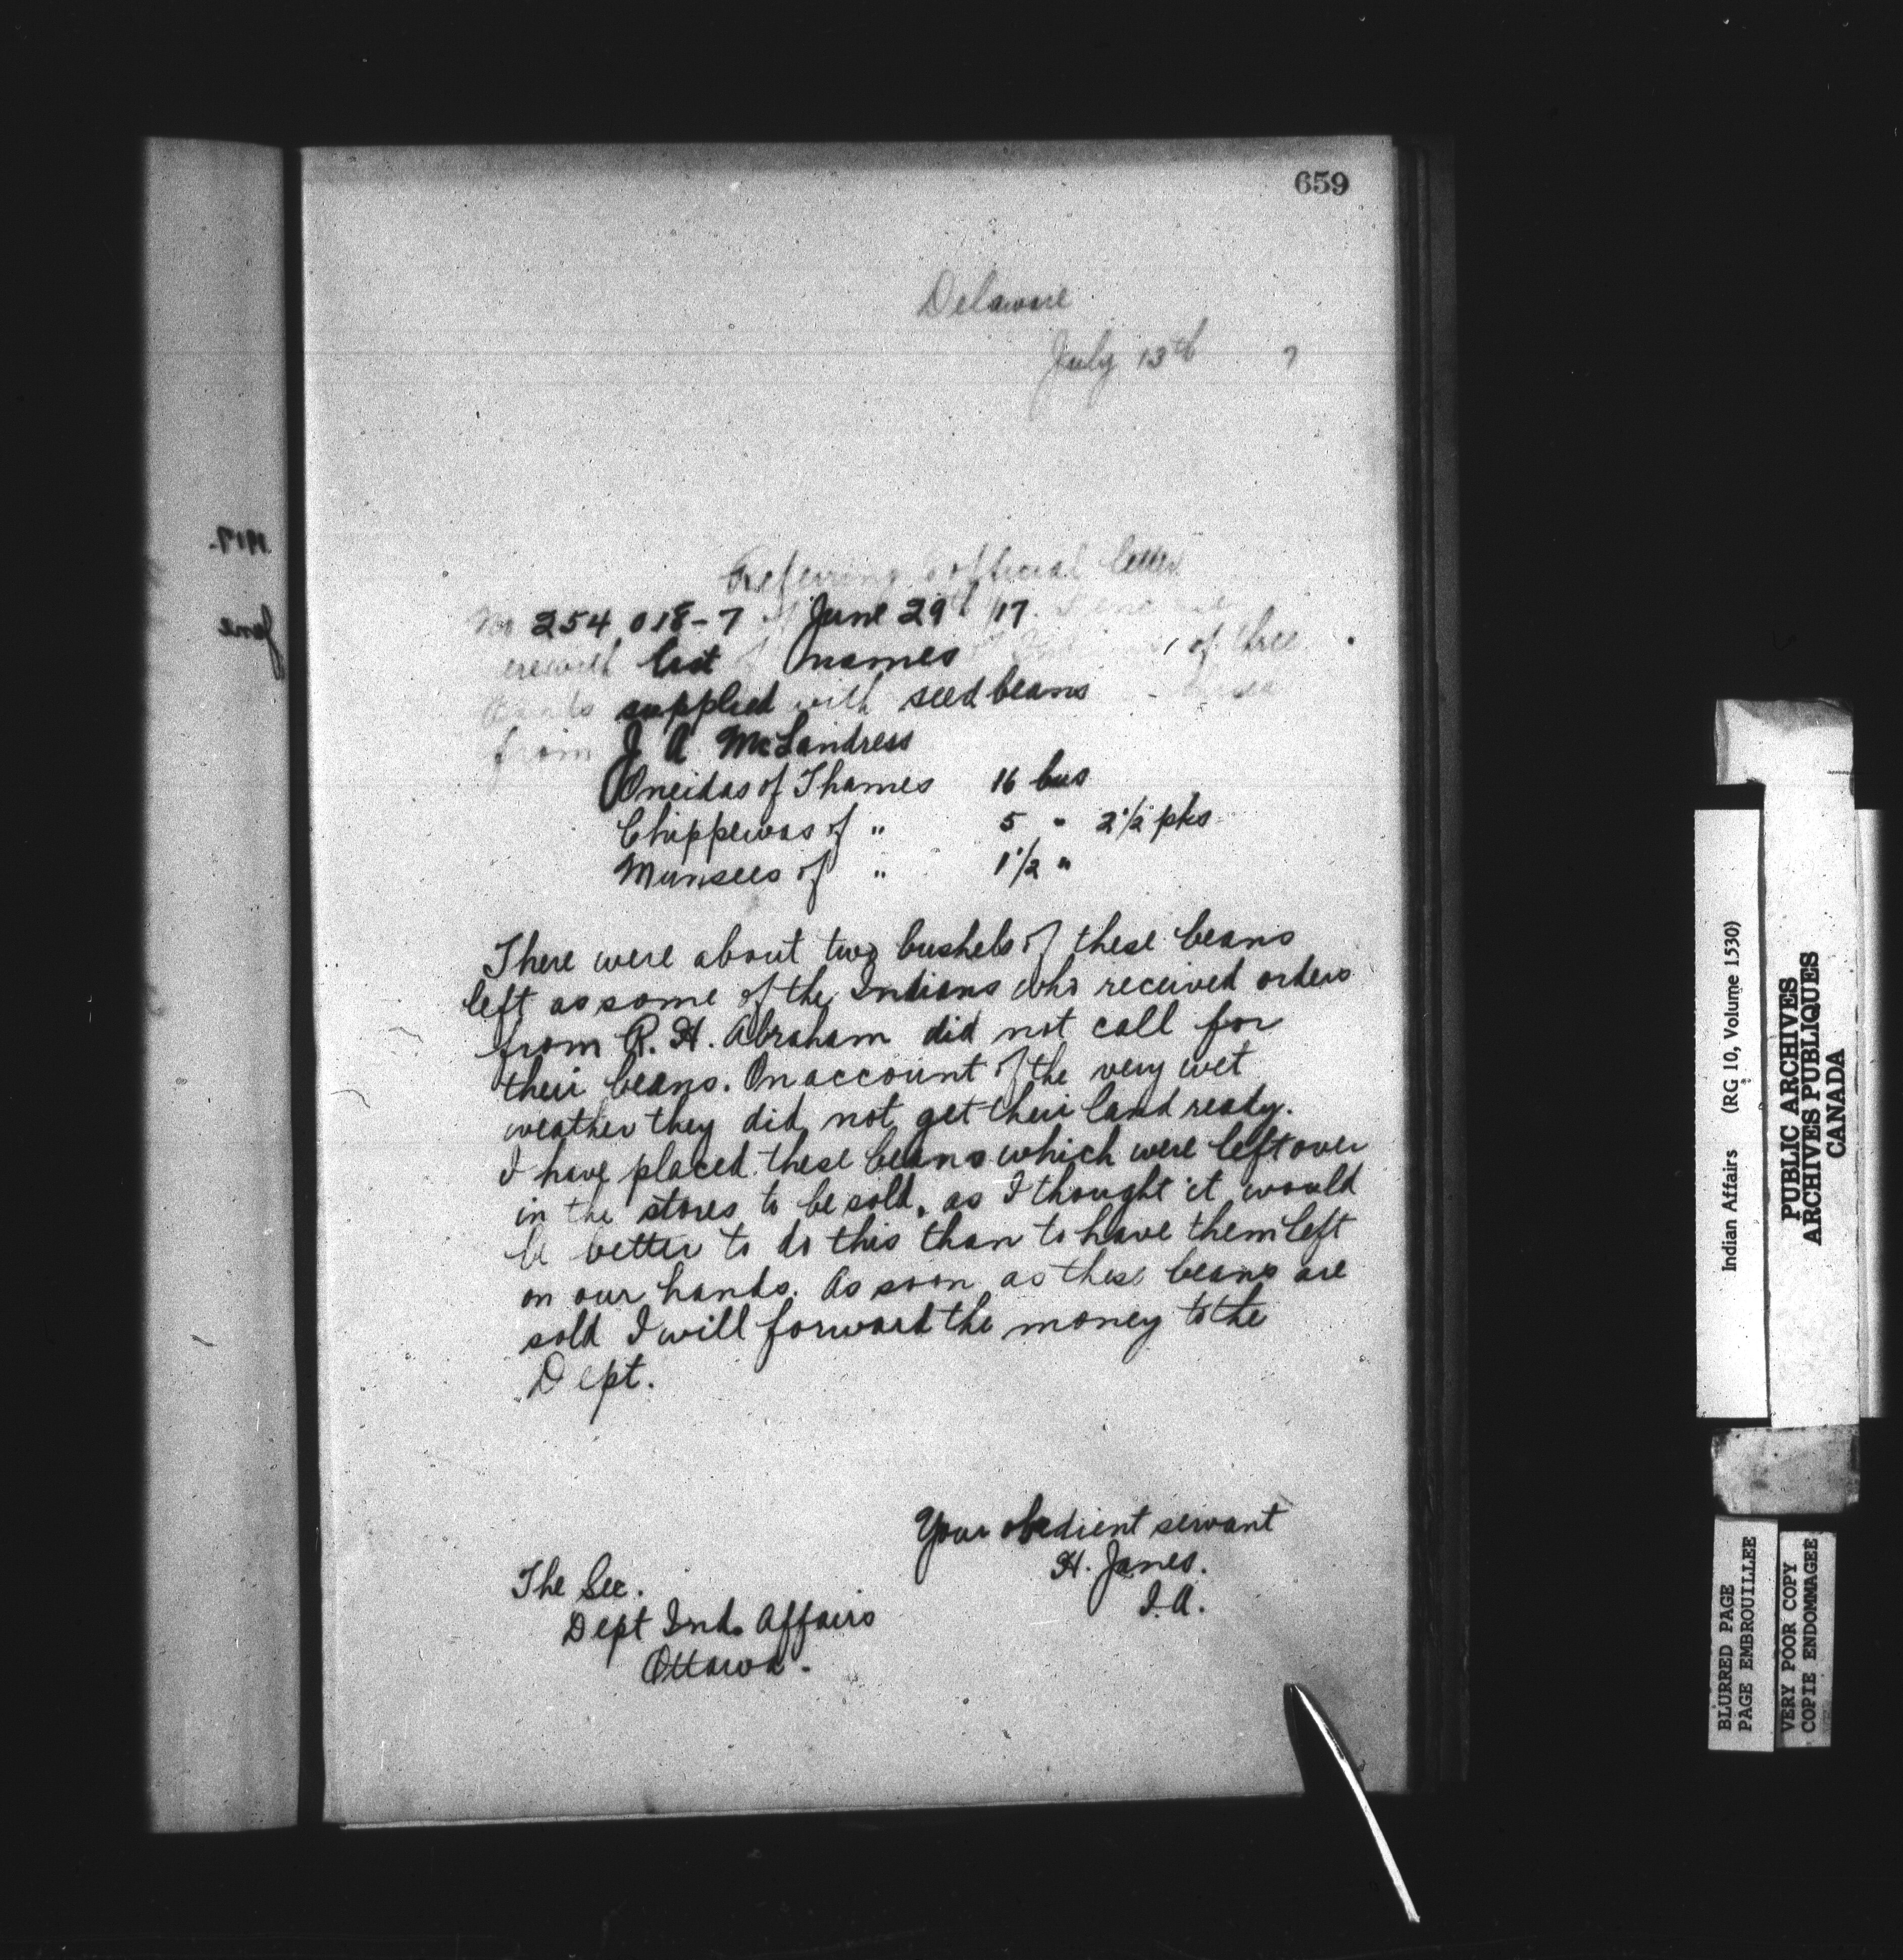 659
Delaware
July 13th 7
Referring official letter
No 254,018-7 of June 29th /17.
erewith list of names of three
Bands supplied with seed beans
from J A McLandress
Oneidas of Thames 16 bus
Chippewas of " 5 " 2 1/2 pks
Munsees of " 1 1/2 "
There were about two bushels of these beans
left as some of the Indians who received orders
from R. H. Abraham did not call for
their beans. On account of the very wet
weather they did not get their land ready.
I have placed these beans which were left over
in the stores to be sold, as I thought it would
be better to do this than to have them left
on our hands. As soon as these beans are
sold I will forward the money to the
Dept.
Your obedient servant
H. Janes.
I.A.
The Sec.
Dept Ind. Affairs
Ottawa.
1917.
June
Indian Affairs (RG 10, Volume 1530)
PUBLIC ARCHIVES
ARCHIVES PUBLIQUES
CANADA
BLURRED PAGE
PAGE EMBROUILLEE
VERY POOR COPY
COPIE ENDOMMAGEE